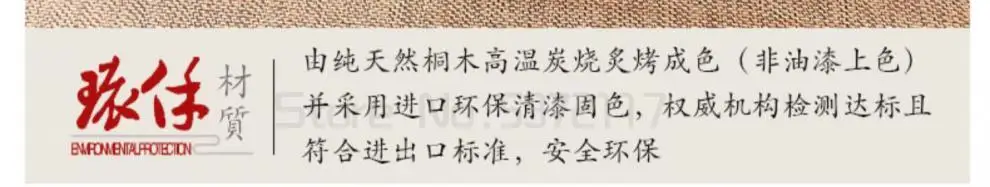 环保
材質
ENVIRONMENTAL PROTECTION
由纯天然桐木高温炭烧炙烤成色（非油漆上色）
并采用进口环保清漆固色，权威机构检测达标且
符合进出口标准，安全环保